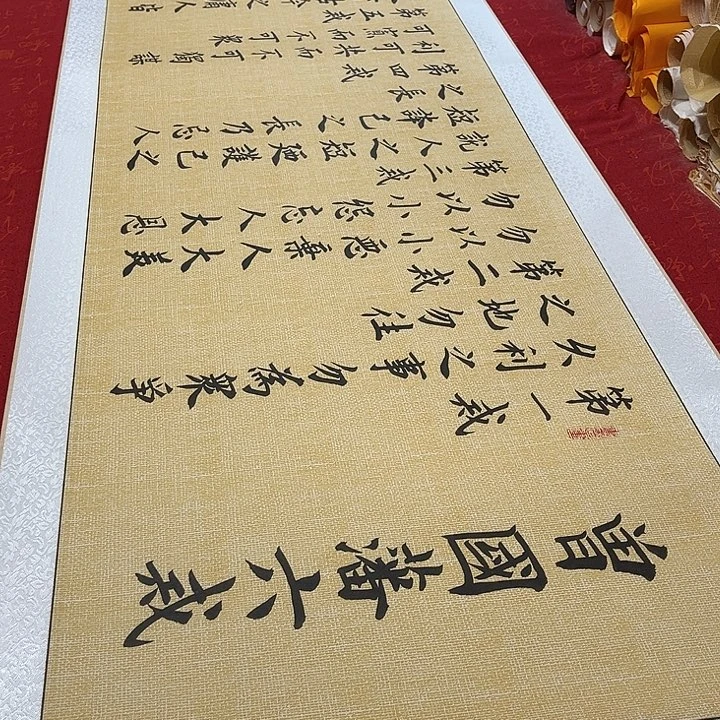 曾國藩六戒
第一戒
久利之事勿為衆爭
之地勿往
第二戒
勿以小惡棄人大美
勿以小怨忘人大恩
第三戒
説人之短乃護己之
短夸己之長乃忌人
之長
第四戒
利可共而不可獨謀
可寡而不可衆
第五戒
之庸人皆